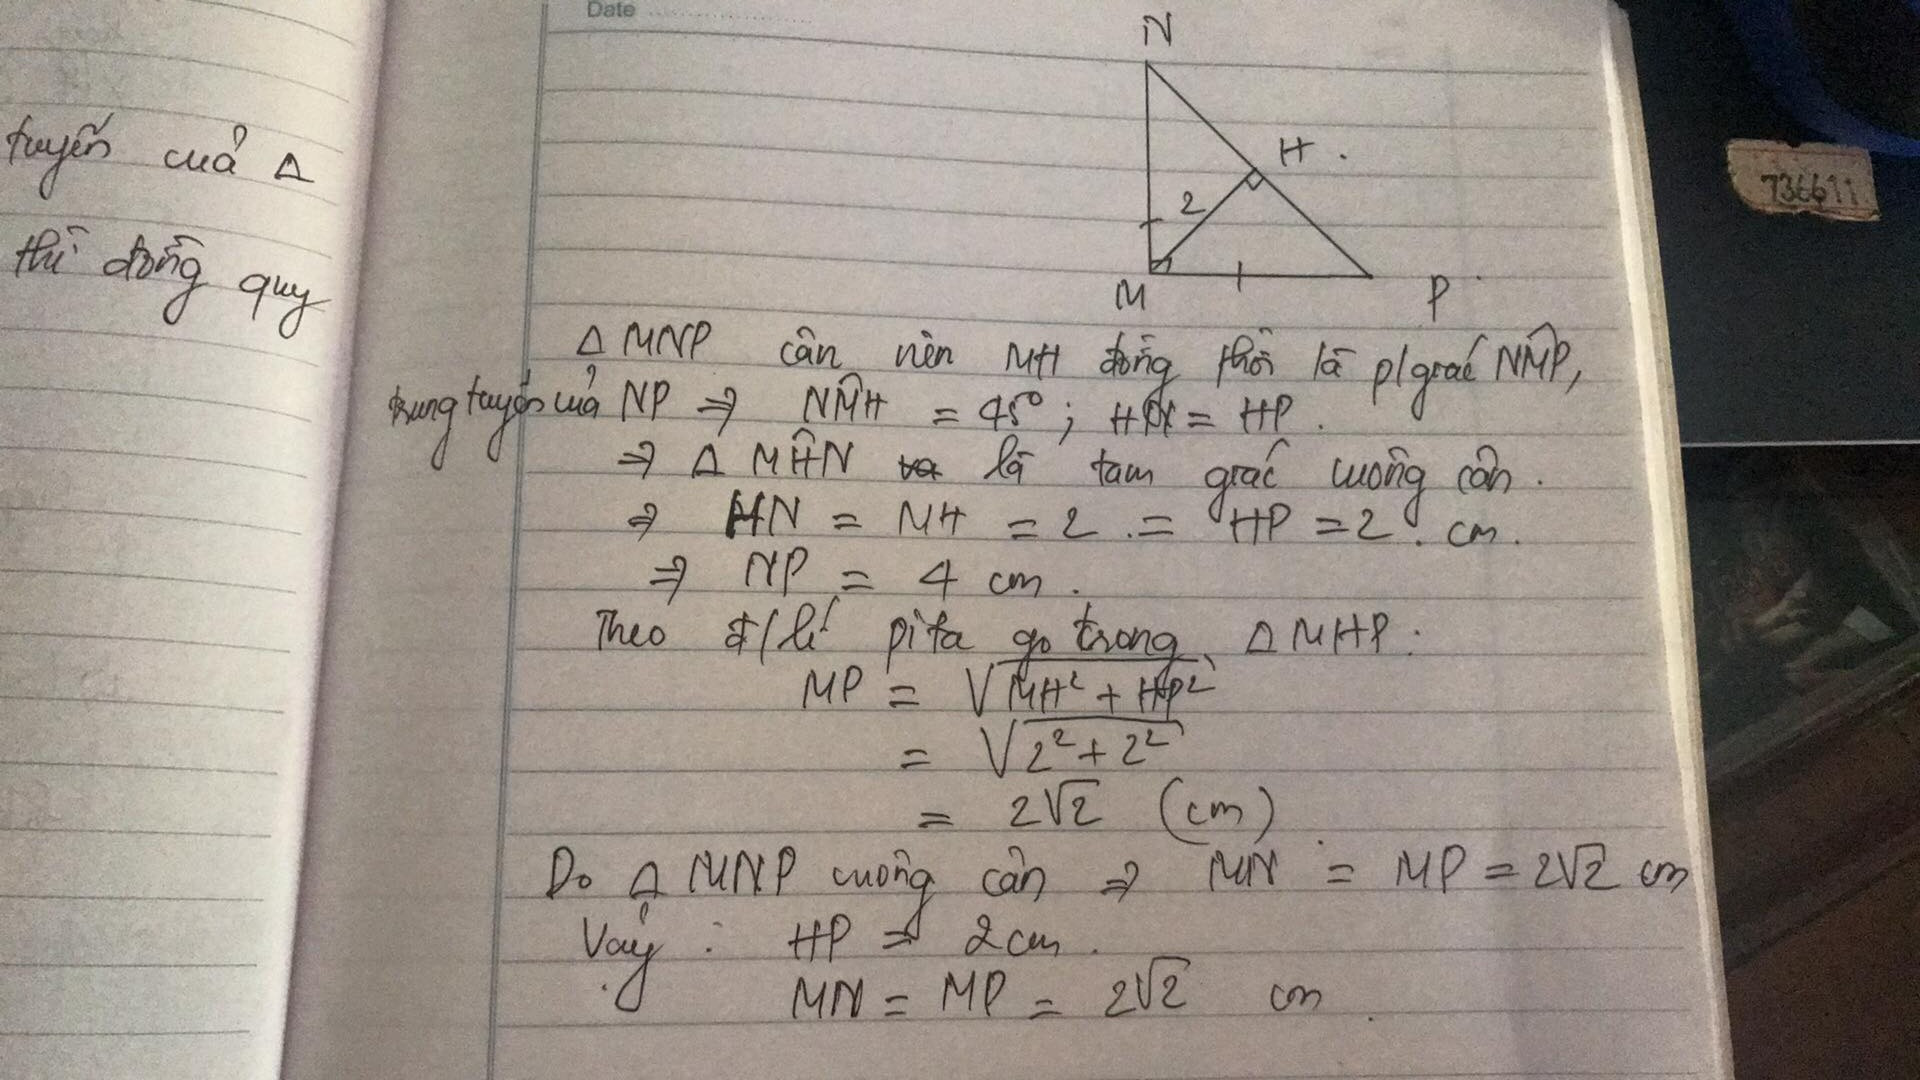 Date
tuyến của Δ
thì đồng quy
N
H
2
M
P
736611
Δ MNP cân nên MH đồng thời là p/giác NM̂P,
trung tuyến của NP ⇒ NM̂H = 45°; HN = HP.
⇒ Δ MĤN là tam giác vuông cân.
⇒ HN = MH = 2 = HP = 2 cm.
⇒ NP = 4 cm.
Theo đ/lí pi ta go trong Δ MHP:
MP = √(MH² + HP²)
= √(2² + 2²)
= 2√2 (cm)
Do Δ MNP vuông cân ⇒ MN = MP = 2√2 cm
Vậy: HP = 2cm.
MN = MP = 2√2 cm.